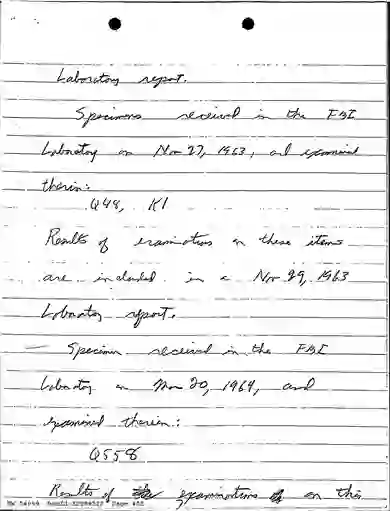 Laboratory report.
Specimens received in the FBI
Laboratory on Nov 27, 1963, and examined
therein:
Q48, K1
Results of examinations on these items
are included in a Nov 29, 1963
Laboratory report.
— Specimen received in the FBI
Laboratory on Mar 20, 1964, and
examined therein:
Q558
Results of the examinations on this
Page